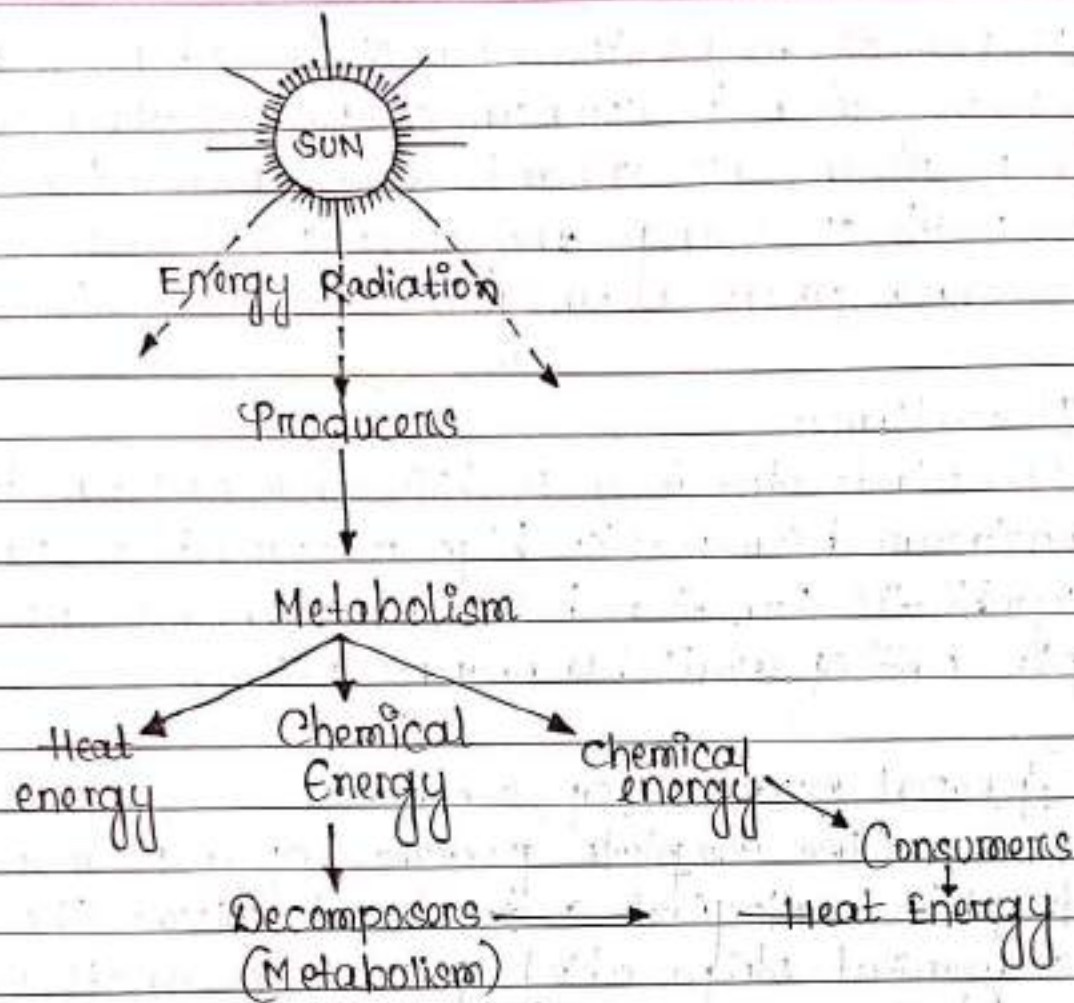 SUN
Energy Radiation
Producers
Metabolism
Heat
energy
Chemical
Energy
Chemical
energy
Consumers
Decomposers
Heat Energy
(Metabolism)